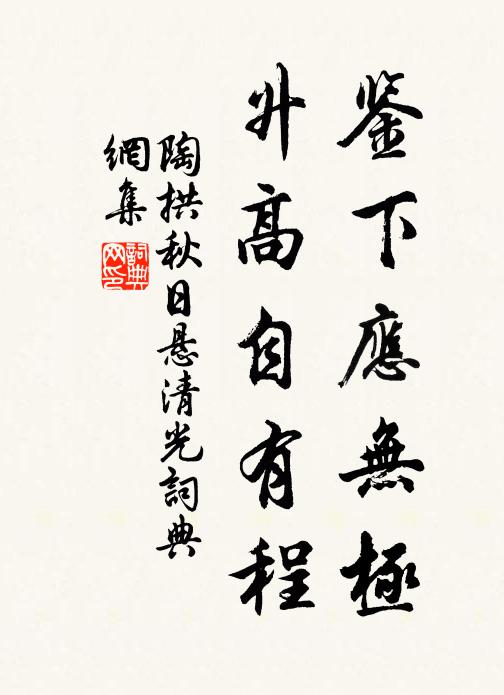 鉴下應無極
升高自有程
陶拱秋日悬清光詞典
網集
詞典网印